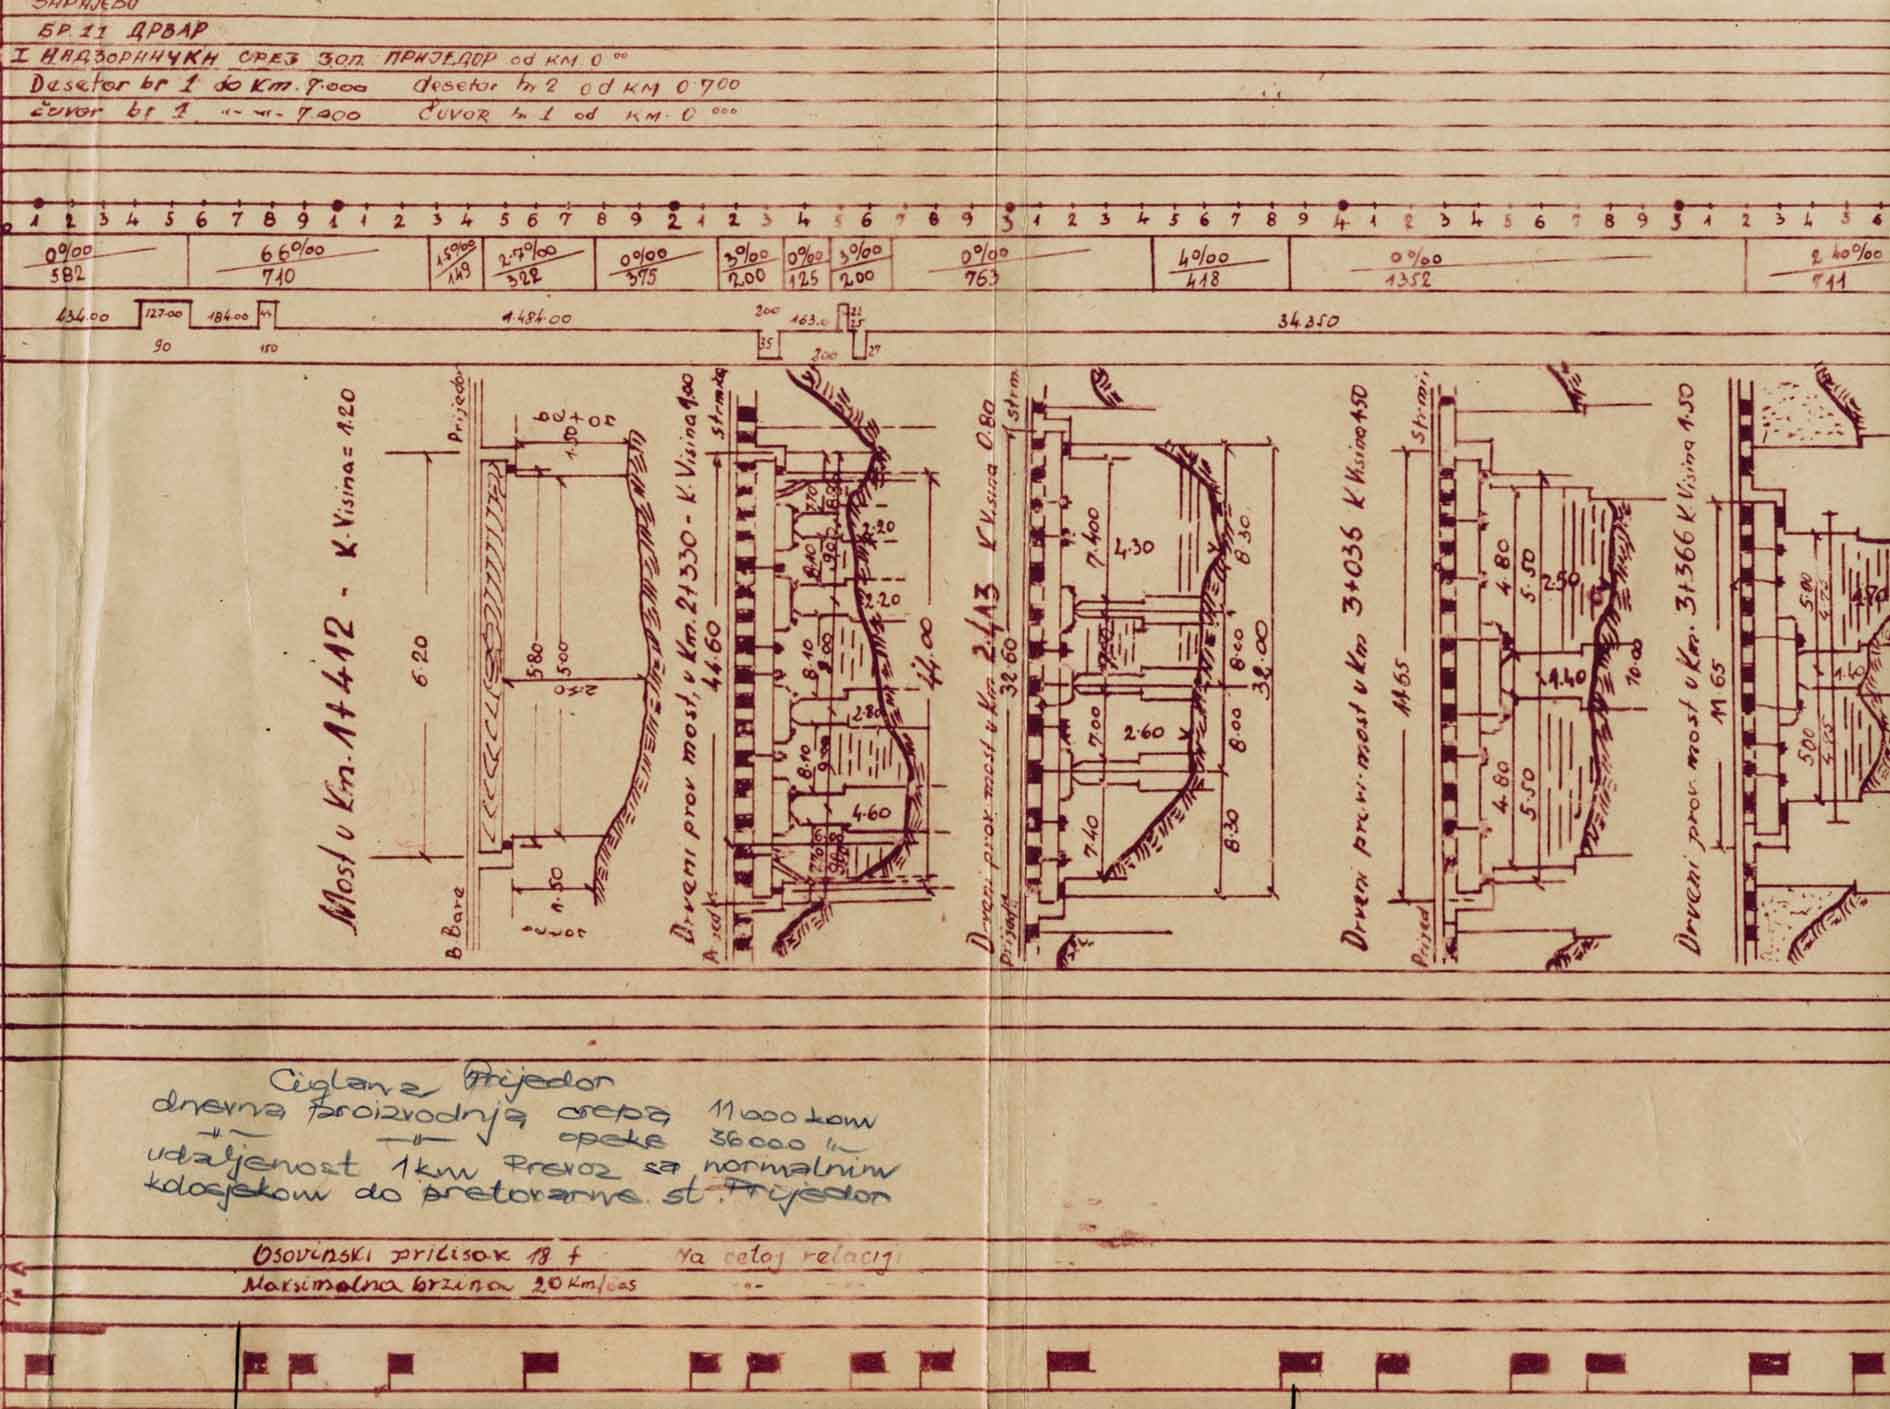 САРАЈЕВО
БР. 11 ДРВАР
I НАДЗОРНИЧКИ СРЕЗ ЗОП. ПРИЈЕДОР od KM 0⁰⁰
Desetar br 1 do Km. 7.000 desetar br 2 od KM 0.700
čuvar br 1 -"- -"- 7.000 ČUVAR br 1 od KM. 0⁰⁰⁰
1 2 3 4 5 6 7 8 9 1 1 2 3 4 5 6 7 8 9 2 1 2 3 4 5 6 7 8 9 3 1 2 3 4 5 6 7 8 9 4 1 2 3 4 5 6 7 8 9 5 1 2 3 4 5 6
0‰ 66‰ 15‰ 2.7‰ 0‰ 3‰ 0‰ 3‰ 0‰ 4‰ 0‰ 2.40‰
582 710 149 322 375 200 125 200 763 418 1352 711
434.00 127.00 184.00 1.484.00 200 163.0 34.350
90 150 35 200 27
Most u Km. 1+412 - K.Visina = 1.20
Prijedor
B Bare
6.20
1.50
5.80
5.00
2.50
1.50
Drveni prov most, u Km. 2+330 - K.Visina 1.00
strmica
44.60
8.10
2.20
2.20
8.10
8.00
2.80
8.10
4.60
44.00
Drveni prov. most u Km K Visina 0.80
strm.
Prijed
32.60
7.400
4.30
7.00
2.60
7.40
8.30
8.00
8.00
8.30
32.00
Drveni prov. most u Km 3+036 K Visina 1.50
Strmi
Prijed
11.65
4.80
5.50
2.50
1.40
4.80
5.50
10.00
Drveni prov. most u Km. 3+366 K Visina 1.50
11.65
5.00
1.40
5.00
Ciglana Prijedor
dnevna proizvodnja crepa 11000 kom
-"- -"- opeke 36000 "-
udaljenost 1km Prevoz sa normalnim
kolosjekom do pretovarne st. Prijedor
Osovinski pritisak 18 t Na celoj relaciji
Maksimalna brzina 20 Km/čas -"-